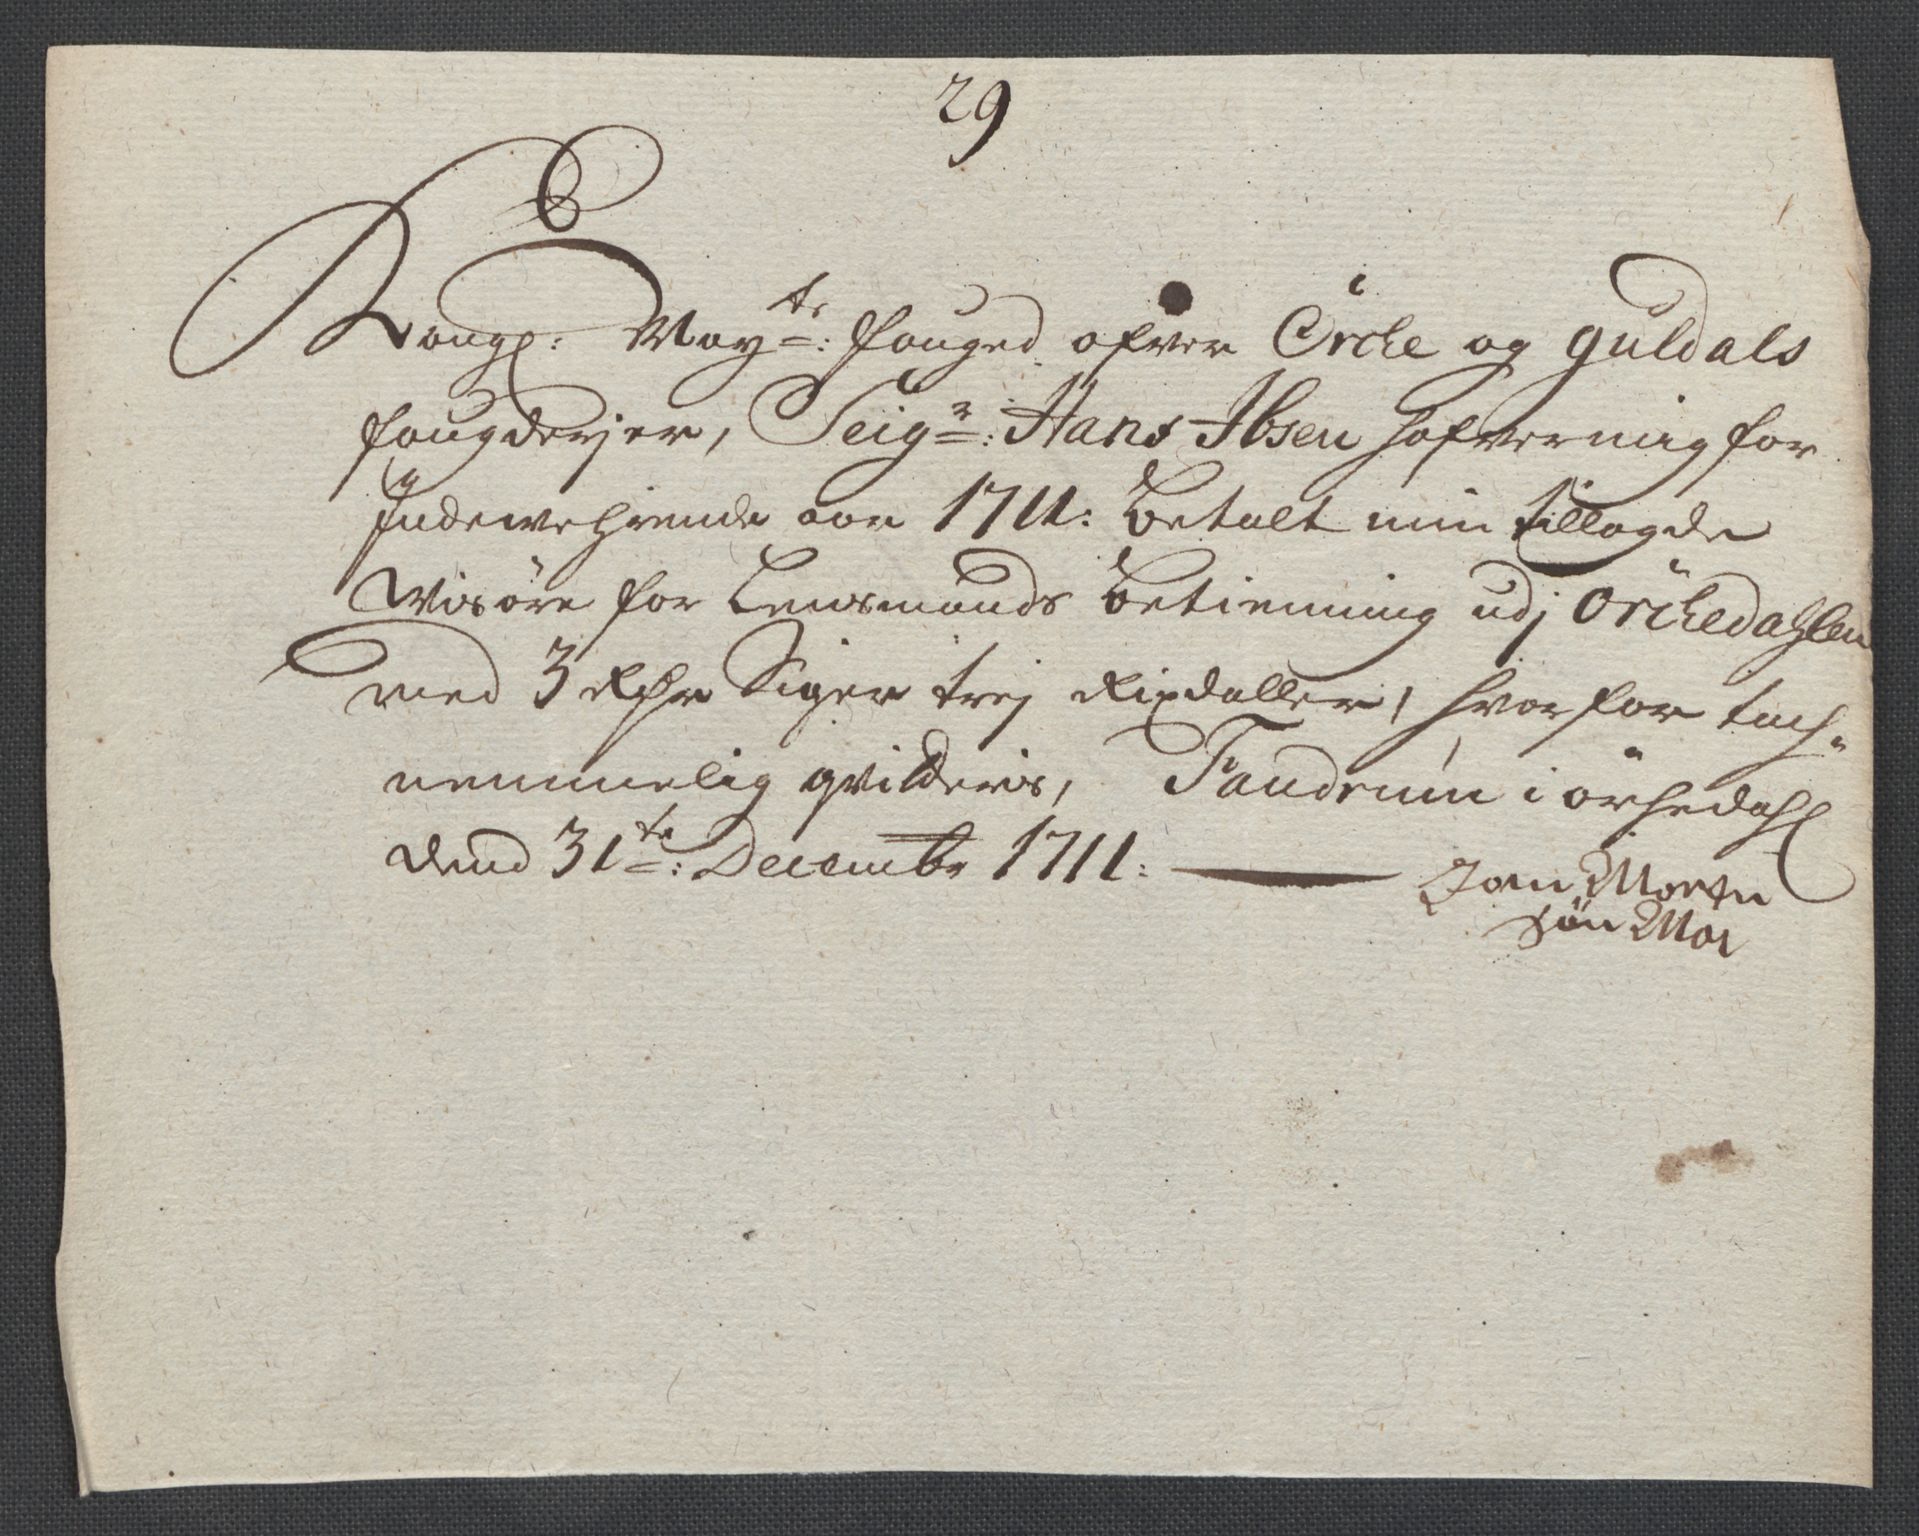 29
Kongl: May.ts: fouged ofver Örche og Guldals
fougderjer, Seigr: Hans Ibsen hafver mig for
Indewehrende aar 1711: betalt min tillagde
Wisøre for Lensmands betienning udj Örchedahlen
med 3 Rdr Siger trej Rixdaller, hvorfor tach-
nemmelig qvitteris, Fandrem i örchedahl
dend 31te: Decembr 1711:
Joen Morten
søn Moe